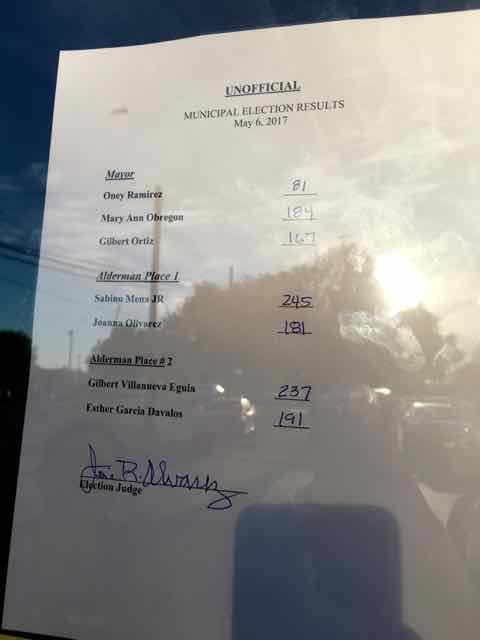 UNOFFICIAL
MUNICIPAL ELECTION RESULTS
May 6, 2017
Mayor
Oney Ramirez 81
Mary Ann Obregon 184
Gilbert Ortiz 167
Alderman Place 1
Sabino Mena JR 245
Joanna Olivarez 181
Alderman Place # 2
Gilbert Villanueva Eguia 237
Esther Garcia Davalos 191
R. Alvarez
Election Judge